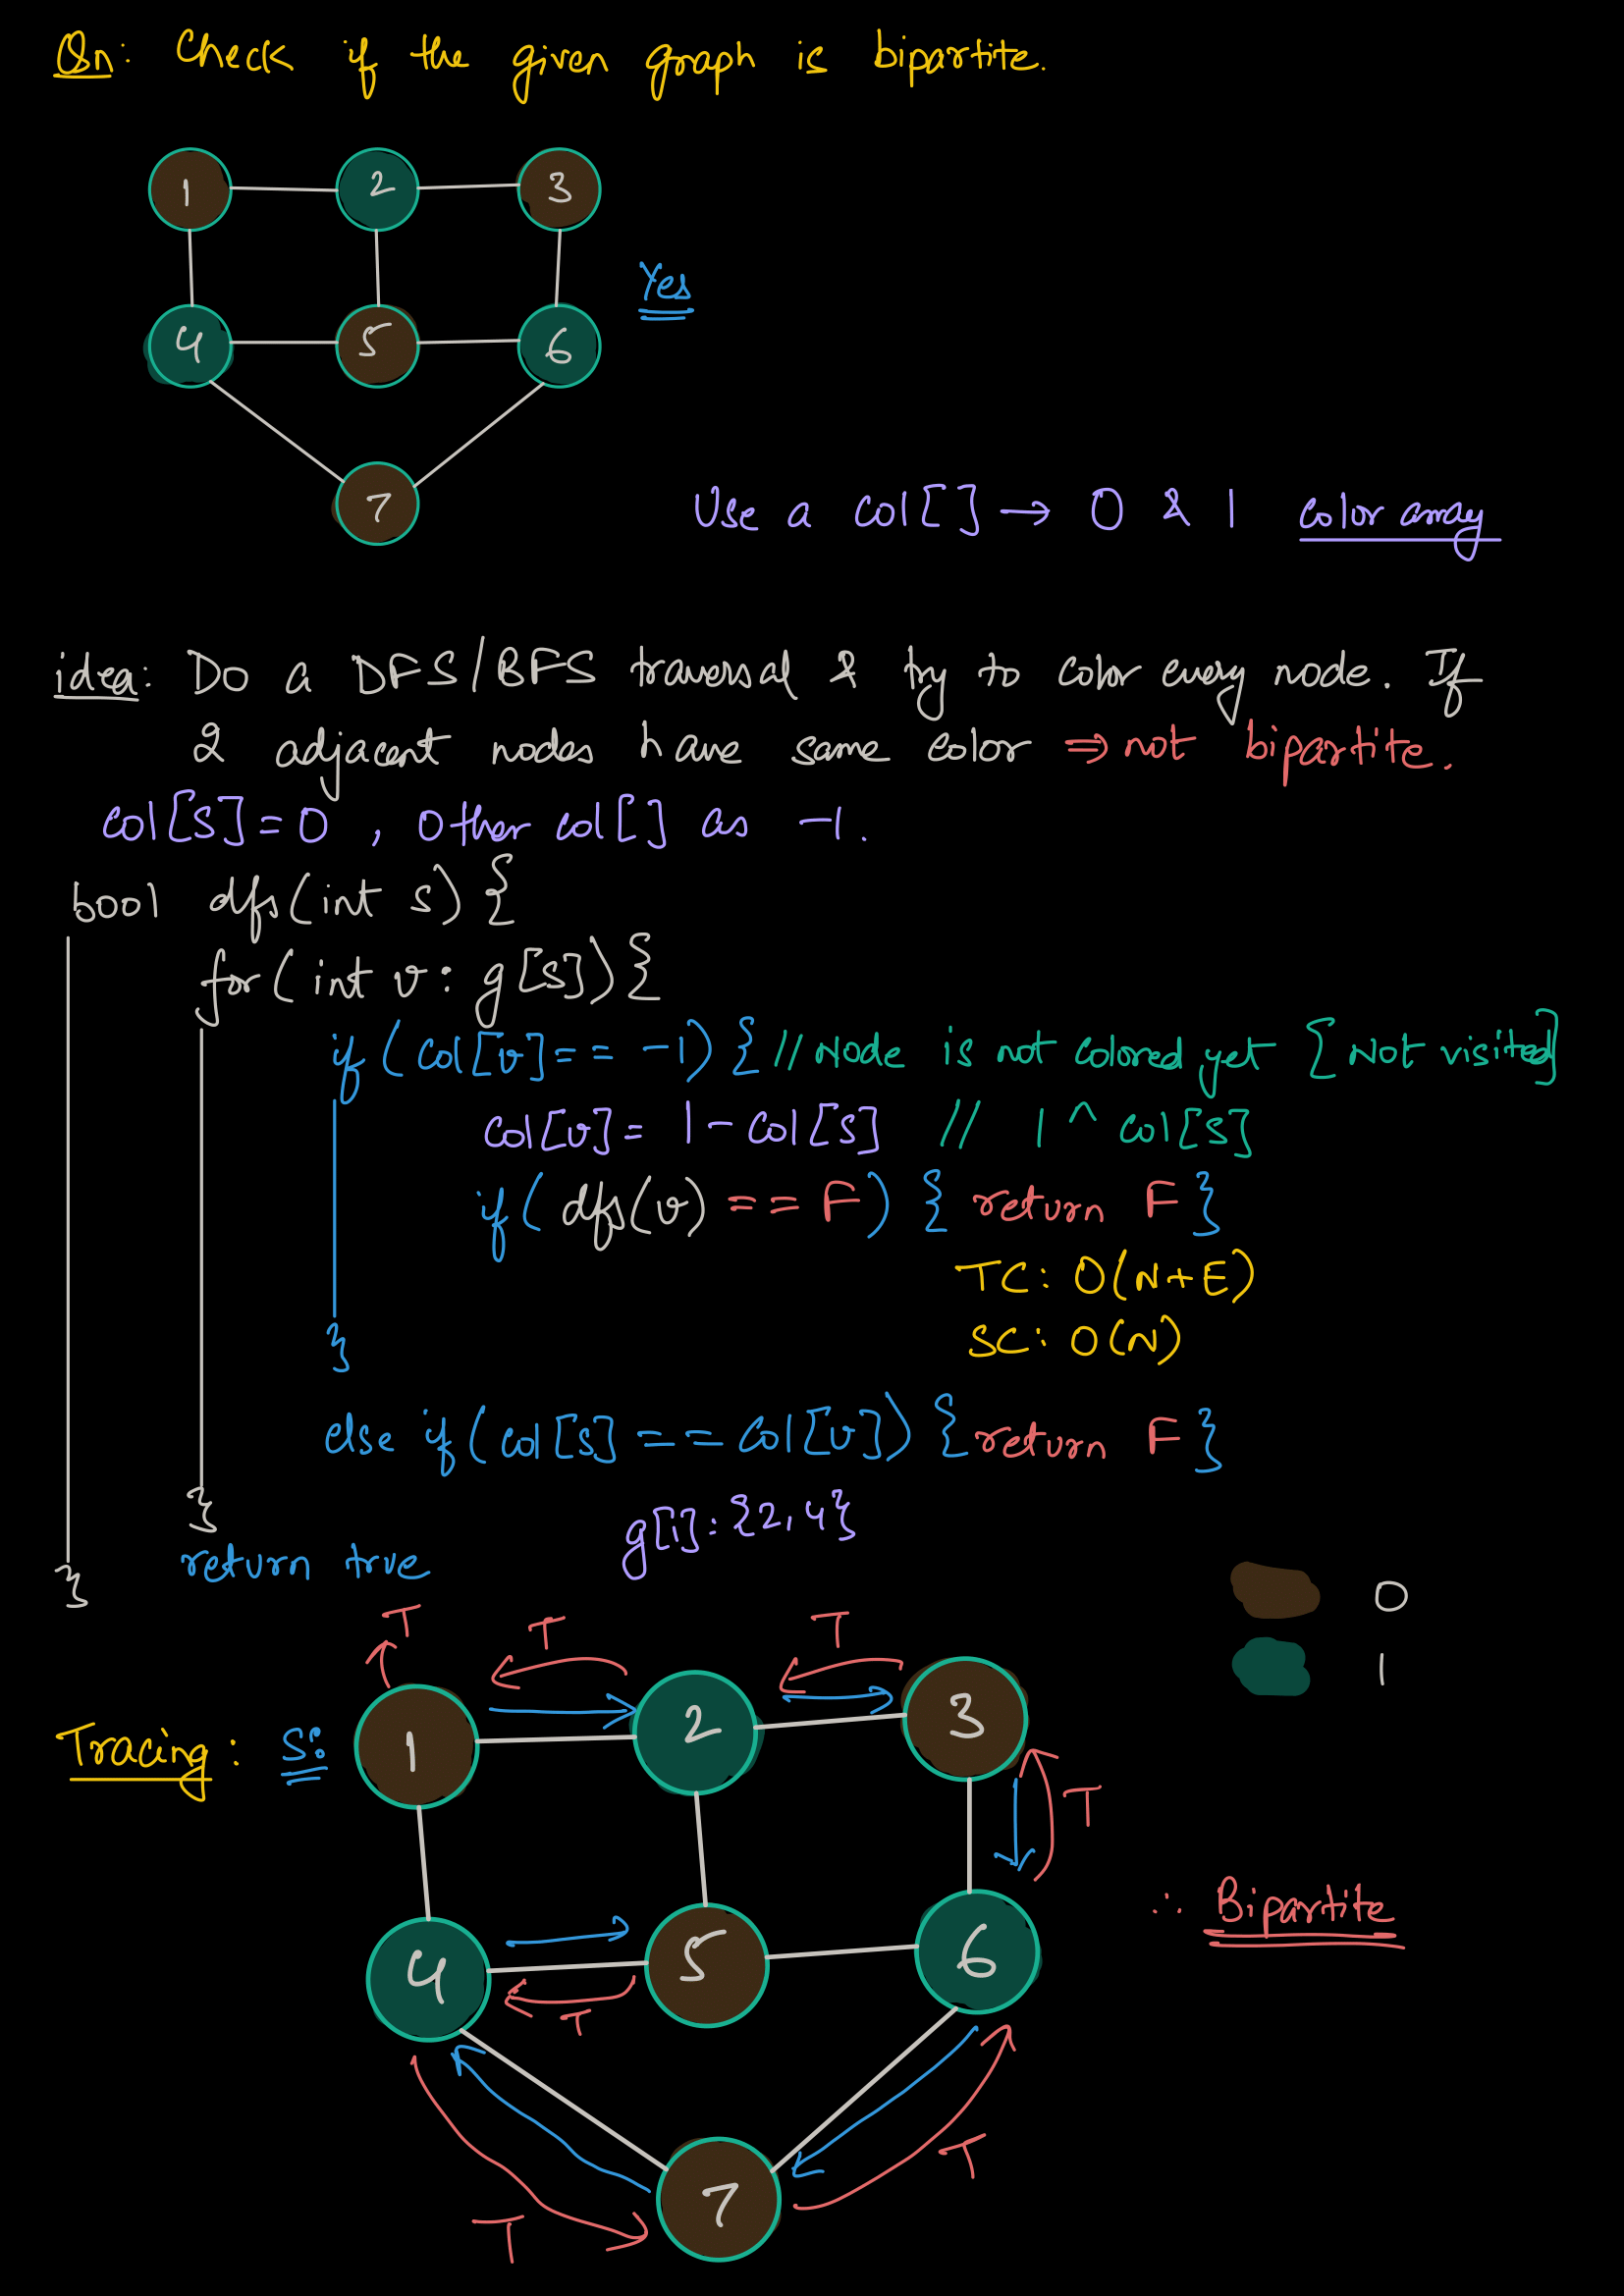 Qn: Check if the given graph is bipartite.
1 2 3
Yes
4 5 6
7
Use a col[] → 0 & 1 color array
idea: Do a DFS/BFS traversal & try to color every node. If
2 adjacent nodes have same color ⇒ not bipartite.
col[s]=0 , other col[] as -1.
bool dfs(int s) {
for(int v: g[s]){
if (col[v]== -1) { // Node is not colored yet [Not visited]
col[v]= 1-col[s] // 1^col[s]
if( dfs(v) == F) { return F }
TC: O(N+E)
SC: O(N)
}
else if(col[s] == col[v]) {return F }
}
g[i]: {2,4}
return true
}
0
1
T T T
Tracing: S: 1 2 3
T
∴ Bipartite
4 5 6
T
T
7
T